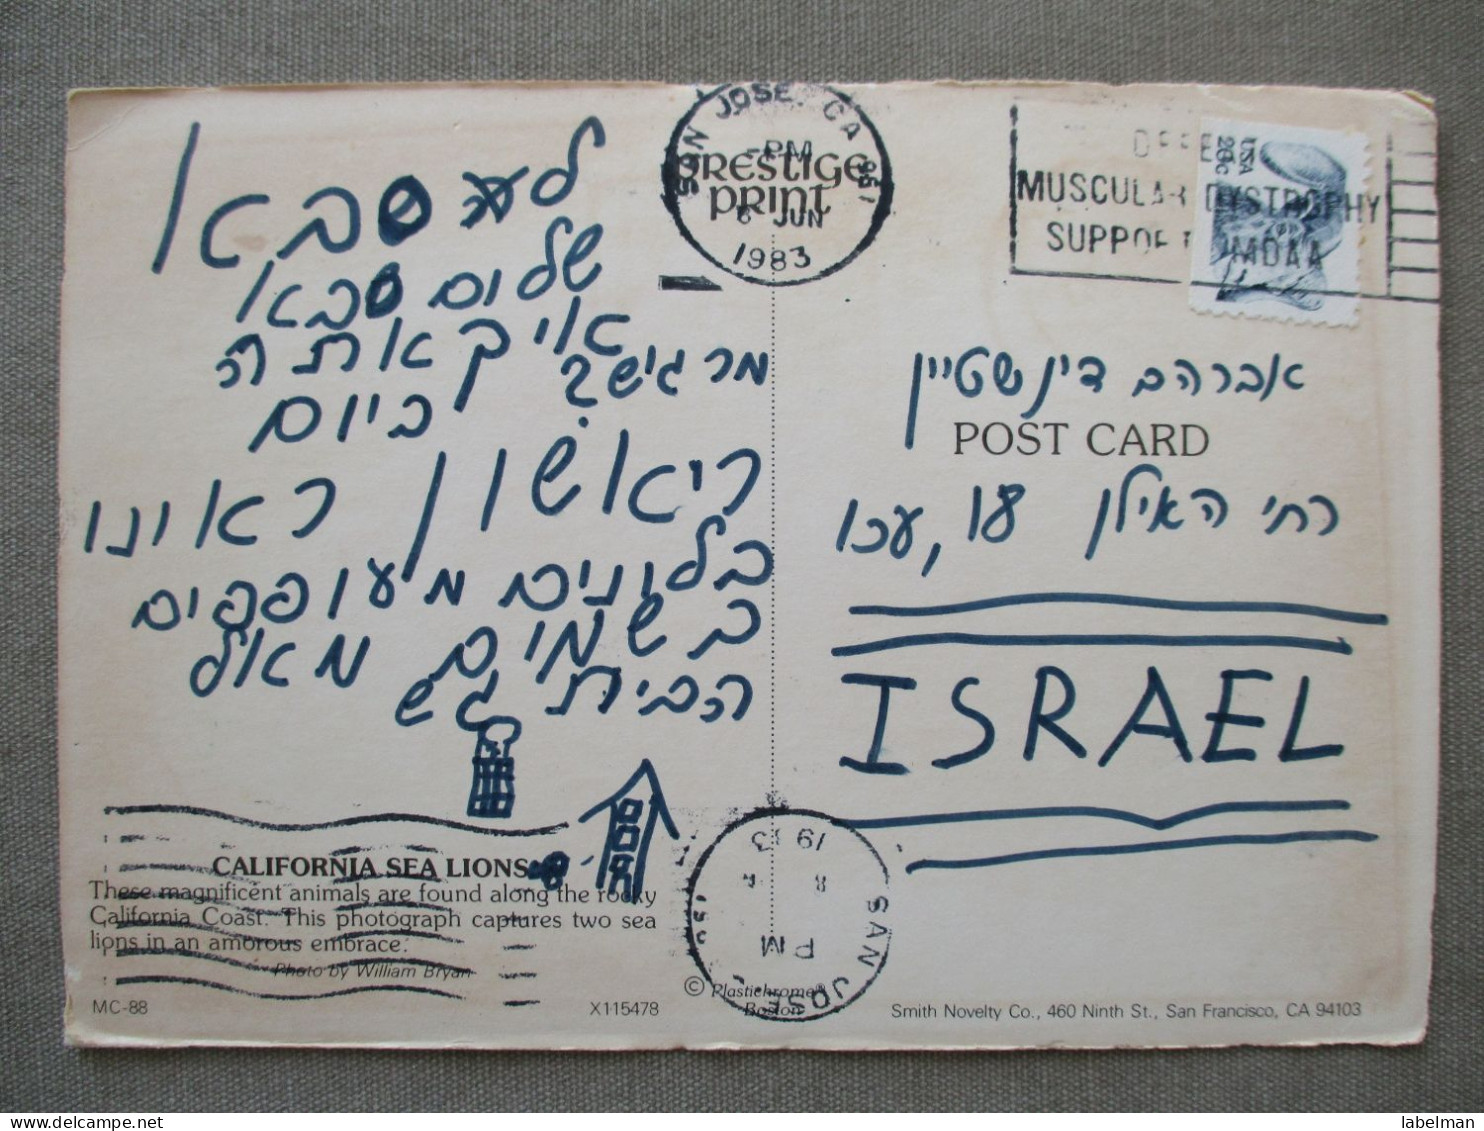 לסבא
שלום סבא
איך אתה
מרגיש? ביום
ריאשון ראינו
בלונים מעופפים
בשמים מאל
הבית
PRESTIGE
PRINT
SAN JOSE, CA 951
PM
6 JUN
1983
USA
20c
MUSCULAR DYSTROPHY
SUPPORT MDAA
אברהם דינשטיין
POST CARD
רחי האילן
עכו
ISRAEL
CALIFORNIA SEA LIONS
These magnificent animals are found along the rocky
California Coast. This photograph captures two sea
lions in an amorous embrace.
Photo by William Bryan
MC-88
X115478
© Plastichrome®
Boston
SAN JOSE
PM
8
19 83
Smith Novelty Co., 460 Ninth St., San Francisco, CA 94103
labelman